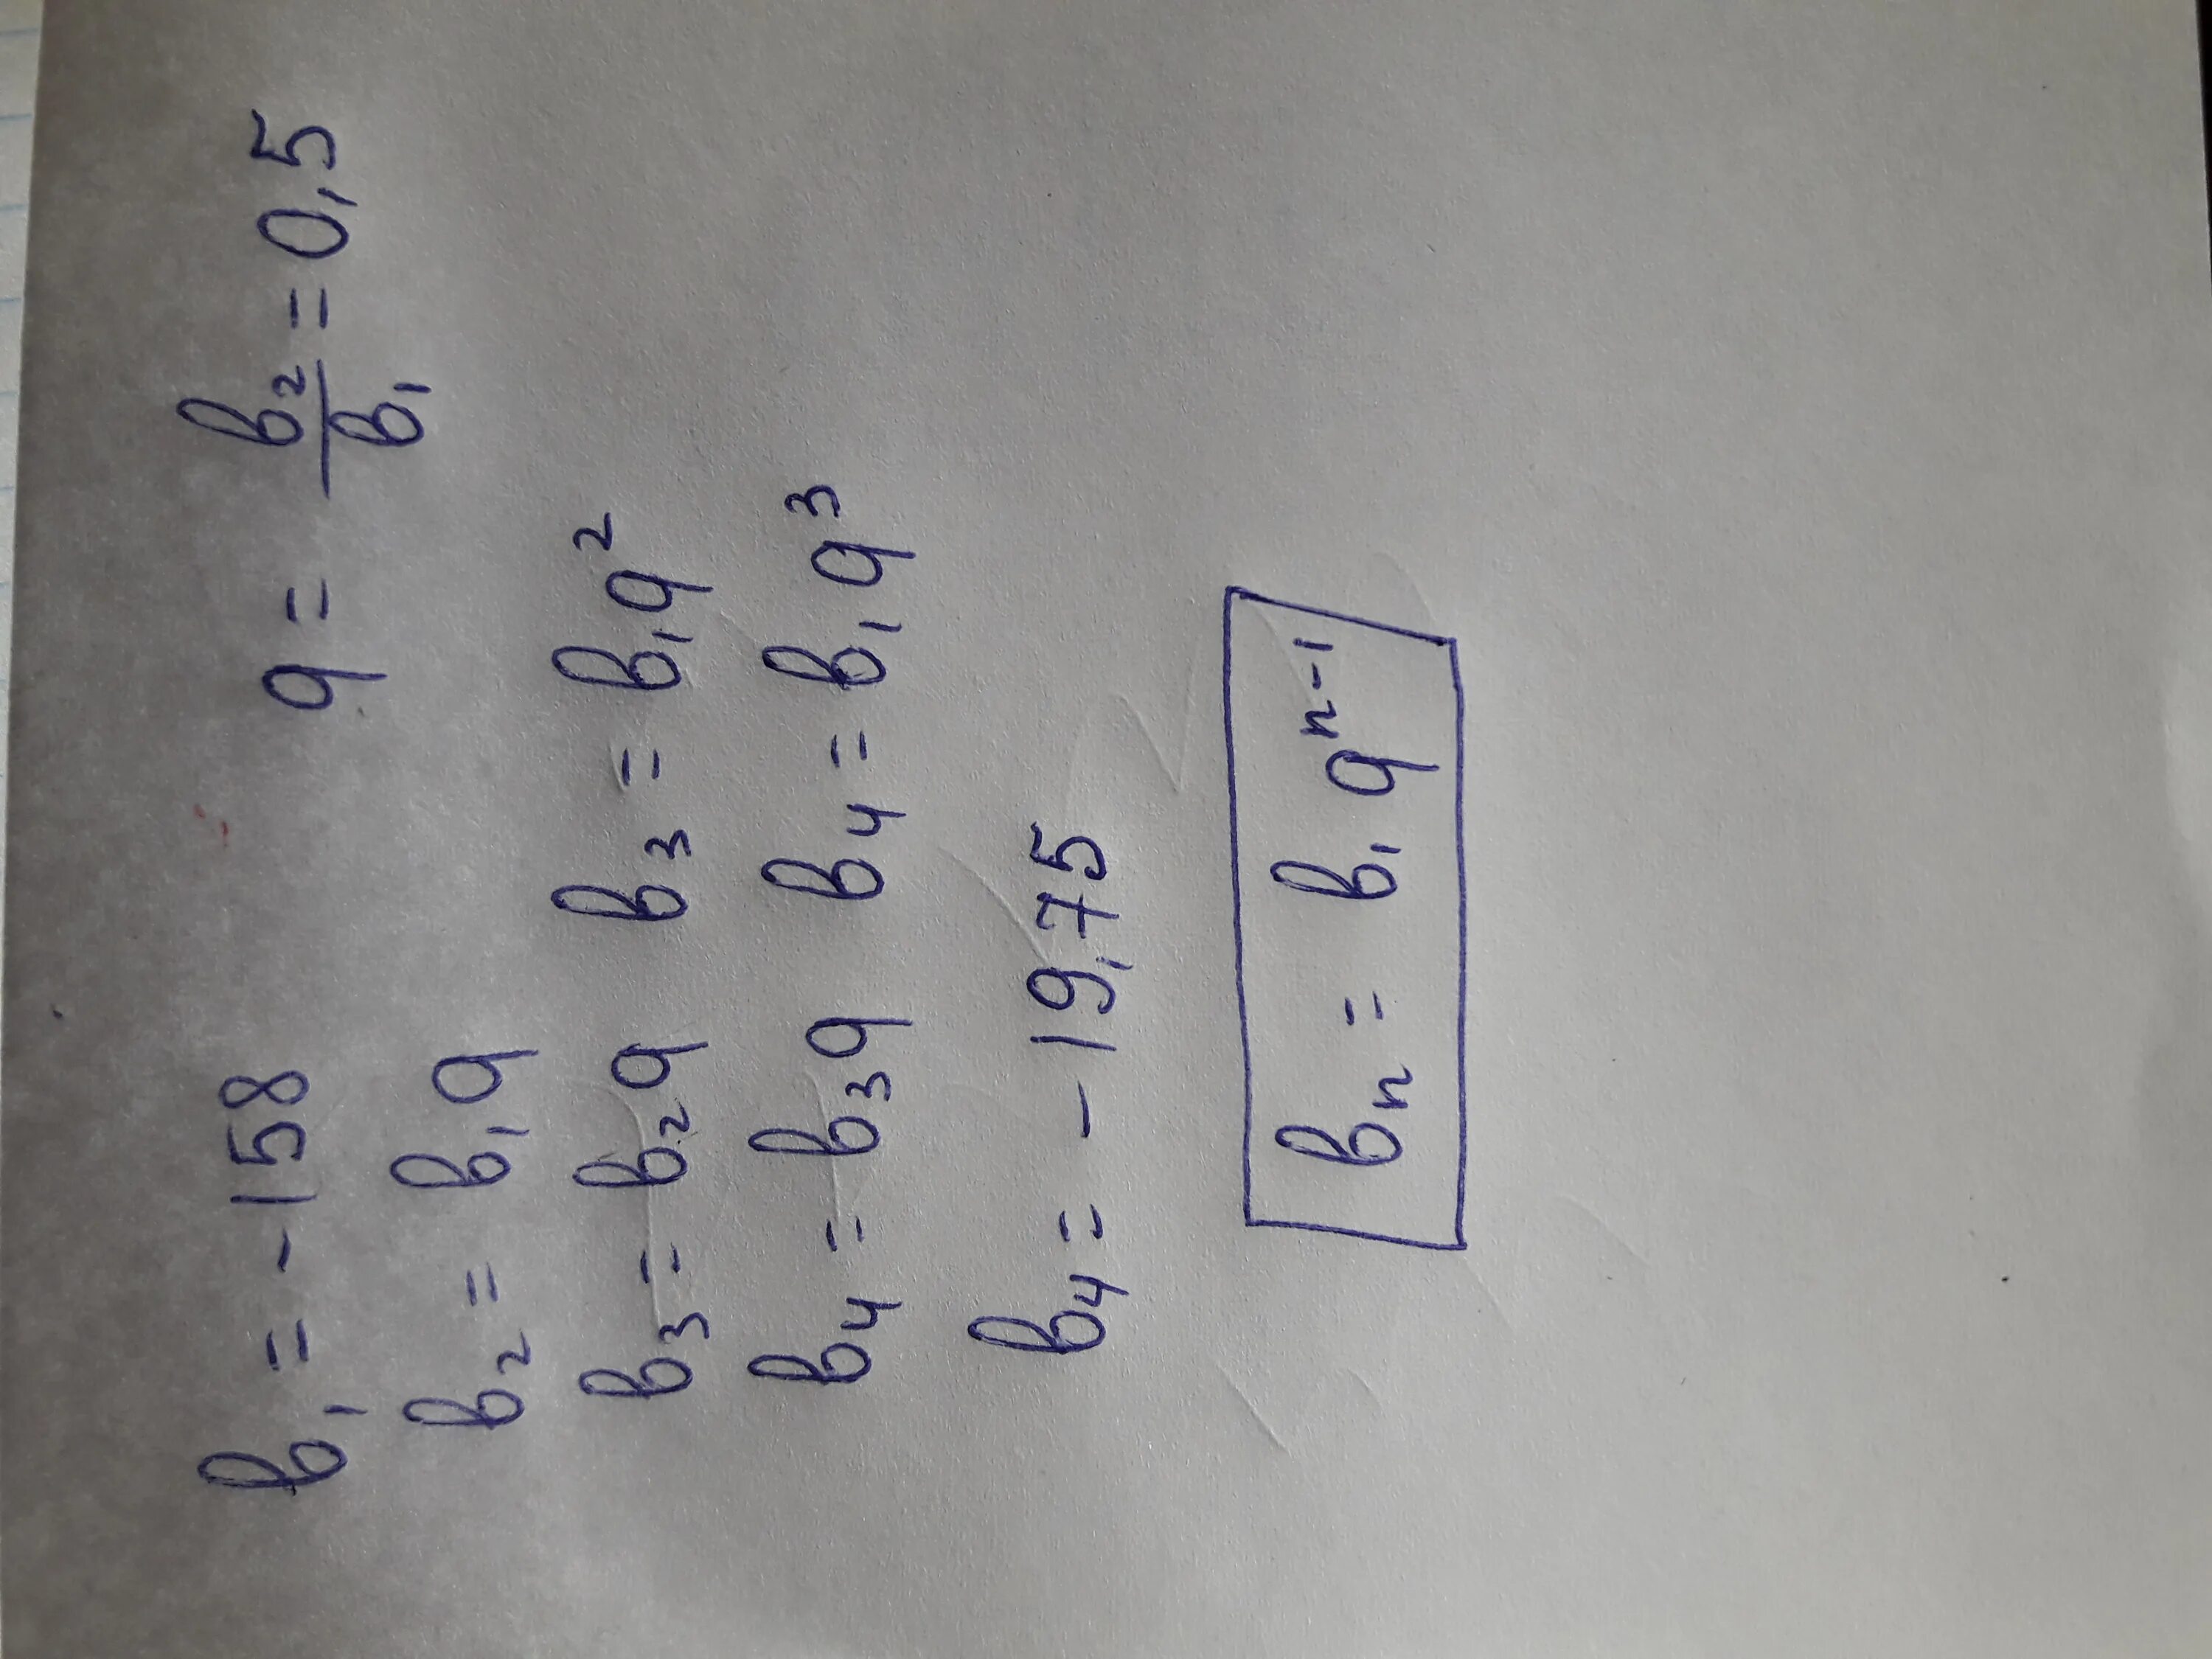 b₁ = -158 q = b₂/b₁ = 0,5
b₂ = b₁q
b₃ = b₂q b₃ = b₁q²
b₄ = b₃q b₄ = b₁q³
b₄ = -19,75
bₙ = b₁qⁿ⁻¹